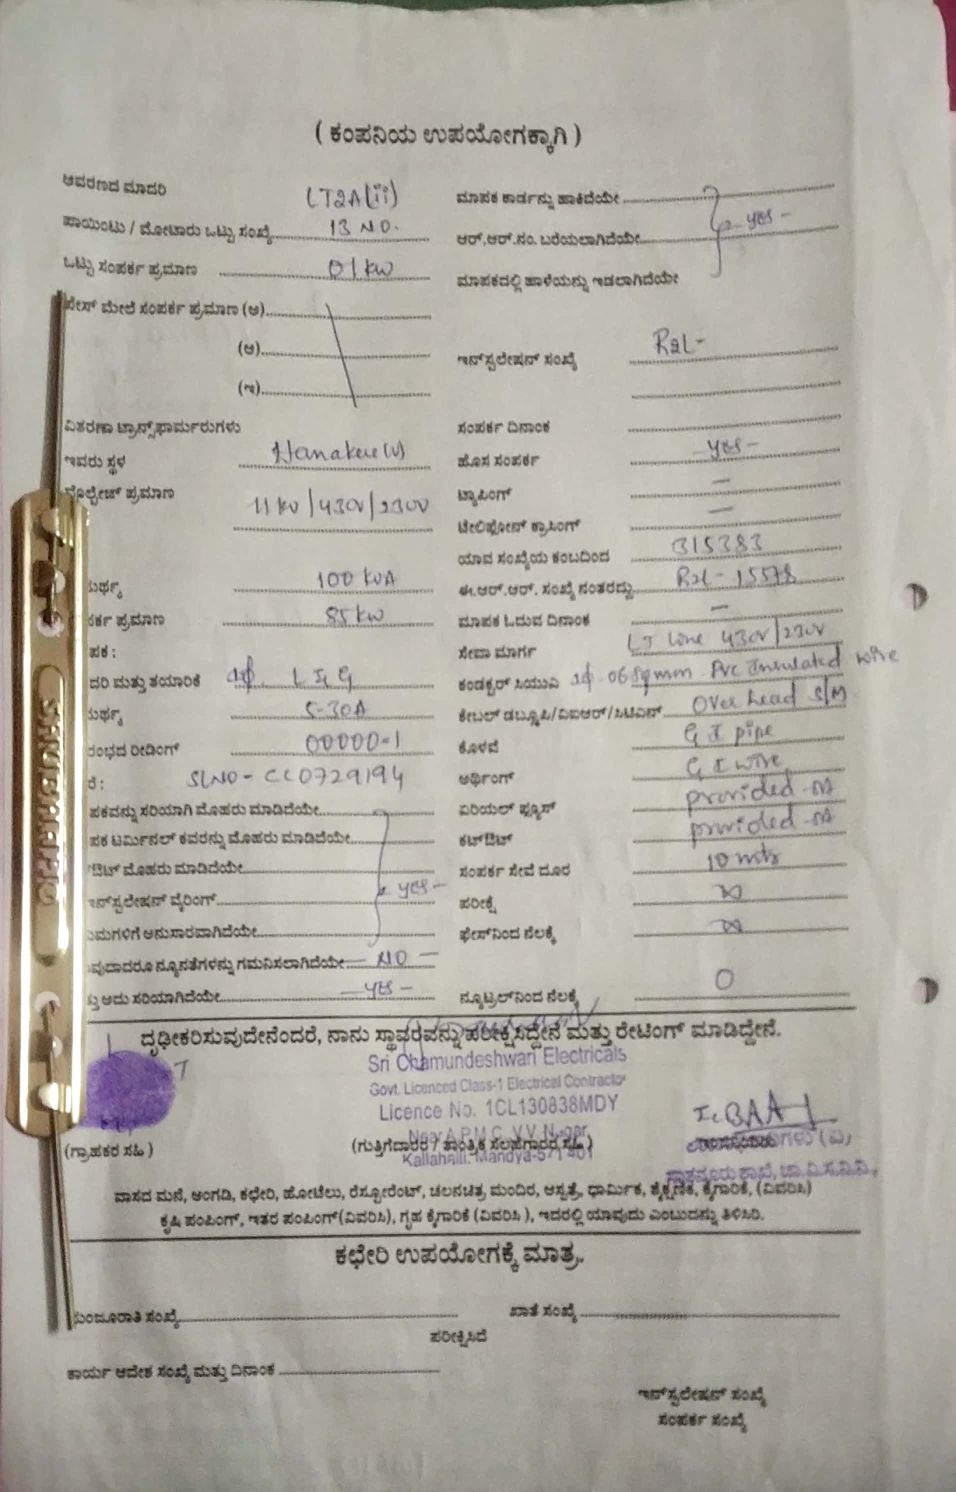 ( ಕಂಪನಿಯ ಉಪಯೋಗಕ್ಕಾಗಿ )
ಆವರಣದ ಮಾದರಿ LT2A(ii)
ಪಾಯಿಂಟು / ಮೋಟಾರು ಒಟ್ಟು ಸಂಖ್ಯೆ 13 NO.
ಒಟ್ಟು ಸಂಪರ್ಕ ಪ್ರಮಾಣ 01 kw
ಫೇಸ್ ಮೇಲೆ ಸಂಪರ್ಕ ಪ್ರಮಾಣ (ಅ)
(ಆ)
(ಇ)
ವಿತರಣಾ ಟ್ರಾನ್ಸ್‌ಫಾರ್ಮರುಗಳು
ಇವರು ಸ್ಥಳ Hanakere (V)
ವೊಲ್ಟೇಜ್ ಪ್ರಮಾಣ 11 kv / 430v / 230v
ಮರ್ಥ್ಯ 100 kvA
ರ್ಕ ಪ್ರಮಾಣ 85 kw
ಪಕ :
ದರಿ ಮತ್ತು ತಯಾರಿಕೆ 1ϕ. L & G
ಮರ್ಥ್ಯ 5-30A
ರಂಭದ ರೀಡಿಂಗ್ 00000-1
SLNO - CC0729194
ಪಕವನ್ನು ಸರಿಯಾಗಿ ಮೊಹರು ಮಾಡಿದೆಯೇ
ಪಕ ಟರ್ಮಿನಲ್ ಕವರನ್ನು ಮೊಹರು ಮಾಡಿದೆಯೇ
ಔಟ್ ಮೊಹರು ಮಾಡಿದೆಯೇ
ಇನ್‌ಸ್ಟಲೇಷನ್ ವೈರಿಂಗ್ yes -
ಯಮಗಳಿಗೆ ಅನುಸಾರವಾಗಿದೆಯೇ
ವುದಾದರೂ ನ್ಯೂನತೆಗಳನ್ನು ಗಮನಿಸಲಾಗಿದೆಯೇ - NO -
ತ್ತು ಅದು ಸರಿಯಾಗಿದೆಯೇ - yes -
ಮಾಪಕ ಕಾರ್ಡನ್ನು ಹಾಕಿದೆಯೇ
ಆರ್.ಆರ್.ನಂ. ಬರೆಯಲಾಗಿದೆಯೇ yes -
ಮಾಪಕದಲ್ಲಿ ಹಾಳೆಯನ್ನು ಇಡಲಾಗಿದೆಯೇ
ಇನ್‌ಸ್ಟಲೇಷನ್ ಸಂಖ್ಯೆ R2L-
ಸಂಪರ್ಕ ದಿನಾಂಕ
ಹೊಸ ಸಂಪರ್ಕ - yes -
ಟ್ಯಾಪಿಂಗ್ -
ಟೇಲಿಫೋನ್ ಕ್ರಾಸಿಂಗ್ -
ಯಾವ ಸಂಖ್ಯೆಯ ಕಂಬದಿಂದ 315383
ಈ.ಆರ್.ಆರ್. ಸಂಖ್ಯೆ ನಂತರದ್ದು R2L- 15578
ಮಾಪಕ ಓದುವ ದಿನಾಂಕ -
ಸೇವಾ ಮಾರ್ಗ LT line 430v/230v
ಕಂಡಕ್ಟರ್ ಸಿಯುವಿ 1ϕ 06 Sqmm Pvc Insulated wire
ಕೇಬಲ್ ಡಬ್ಲೂಪಿ/ವಿಐಆರ್/ಸಿಟಿಎಸ್ Over head S/M
ಕೊಳವೆ G I pipe
ಅರ್ಥಿಂಗ್ G I wire
ಏರಿಯಲ್ ಫ್ಯೂಸ್ provided
ಕಟ್‌ಔಟ್ provided
ಸಂಪರ್ಕ ಸೇವೆ ದೂರ 10 mts
ಪರೀಕ್ಷೆ
ಫೇಸ್‌ನಿಂದ ನೆಲಕ್ಕೆ
ನ್ಯೂಟ್ರಲ್‌ನಿಂದ ನೆಲಕ್ಕೆ 0
ದೃಢೀಕರಿಸುವುದೇನೆಂದರೆ, ನಾನು ಸ್ಥಾವರವನ್ನು ಪರೀಕ್ಷಿಸಿದ್ದೇನೆ ಮತ್ತು ರೇಟಿಂಗ್ ಮಾಡಿದ್ದೇನೆ.
Sri Chamundeshwari Electricals
Govt. Licenced Class-1 Electrical Contractor
Licence No. 1CL130838MDY
Near A.P.M.C. V.V. Nagar,
Kallahalli. Mandya-571 401
(ಗ್ರಾಹಕರ ಸಹಿ)
(ಗುತ್ತಿಗೆದಾರರ / ತಾಂತ್ರಿಕ ಸಲಹಗಾರರ ಸಹಿ)
ವಾಸದ ಮನೆ, ಅಂಗಡಿ, ಕಛೇರಿ, ಹೋಟೆಲು, ರೆಸ್ಟೋರೆಂಟ್, ಚಲನಚಿತ್ರ ಮಂದಿರ, ಆಸ್ಪತ್ರೆ, ಧಾರ್ಮಿಕ, ಶೈಕ್ಷಣಿಕ, ಕೈಗಾರಿಕೆ, (ವಿವರಿಸಿ)
ಕೃಷಿ ಪಂಪಿಂಗ್, ಇತರ ಪಂಪಿಂಗ್(ವಿವರಿಸಿ), ಗೃಹ ಕೈಗಾರಿಕೆ (ವಿವರಿಸಿ), ಇದರಲ್ಲಿ ಯಾವುದು ಎಂಬುದನ್ನು ತಿಳಿಸಿರಿ.
ಕಛೇರಿ ಉಪಯೋಗಕ್ಕೆ ಮಾತ್ರ.
ಮಂಜೂರಾತಿ ಸಂಖ್ಯೆ
ಖಾತೆ ಸಂಖ್ಯೆ
ಪರೀಕ್ಷಿಸಿದೆ
ಕಾರ್ಯ ಆದೇಶ ಸಂಖ್ಯೆ ಮತ್ತು ದಿನಾಂಕ
ಇನ್‌ಸ್ಟಲೇಷನ್ ಸಂಖ್ಯೆ
ಸಂಪರ್ಕ ಸಂಖ್ಯೆ